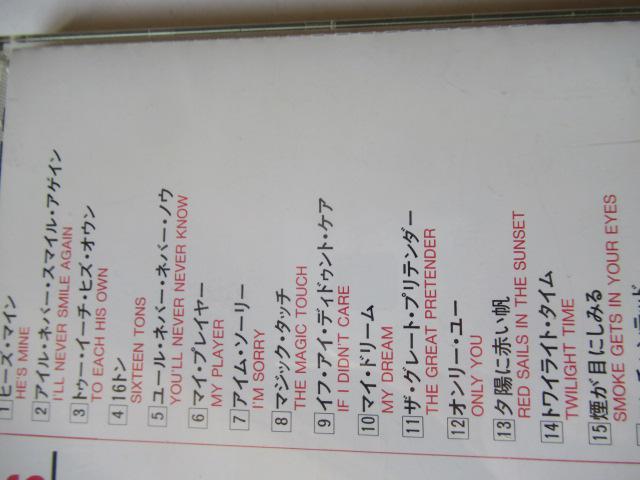 1 ヒーズ・マイン
HE'S MINE
2 アイル・ネバー・スマイル・アゲイン
I'LL NEVER SMILE AGAIN
3 トゥー・イーチ・ヒズ・オウン
TO EACH HIS OWN
4 16トン
SIXTEEN TONS
5 ユール・ネバー・ネバー・ノウ
YOU'LL NEVER NEVER KNOW
6 マイ・プレイヤー
MY PLAYER
7 アイム・ソーリー
I'M SORRY
8 マジック・タッチ
THE MAGIC TOUCH
9 イフ・アイ・ディドゥント・ケア
IF I DIDN'T CARE
10 マイ・ドリーム
MY DREAM
11 ザ・グレート・プリテンダー
THE GREAT PRETENDER
12 オンリー・ユー
ONLY YOU
13 夕陽に赤い帆
RED SAILS IN THE SUNSET
14 トワイライト・タイム
TWILIGHT TIME
15 煙が目にしみる
SMOKE GETS IN YOUR EYES